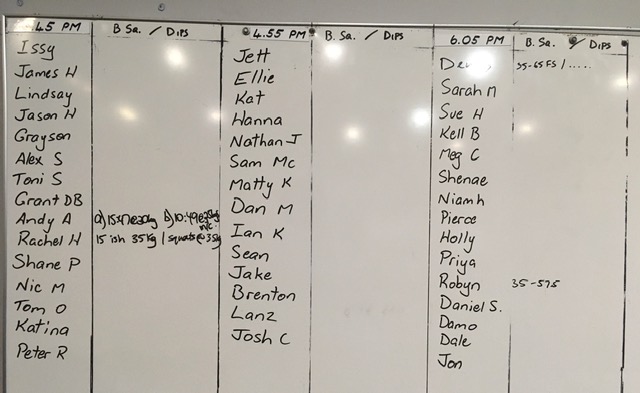 .45 PM
B Sa. / Dips
Issy
James H
Lindsay
Jason H
Grayson
Alex S
Toni S
Grant DB
Andy A
Rachel H 15 ish 35kg / squats @ 35kg
Shane P
Nic M
Tom O
Katina
Peter R
4.55 PM
B. Sa. / Dips
Jett
Ellie
Kat
Hanna
Nathan J
Sam Mc
Matty K
Dan M
Ian K
Sean
Jake
Brenton
Lanz
Josh C
6.05 PM
B. Sa. / Dips
35-65FS / .....
Sarah M
Sue H
Kell B
Meg C
Shenae
Niamh
Pierce
Holly
Priya
Robyn 35-575
Daniel S.
Damo
Dale
Jon